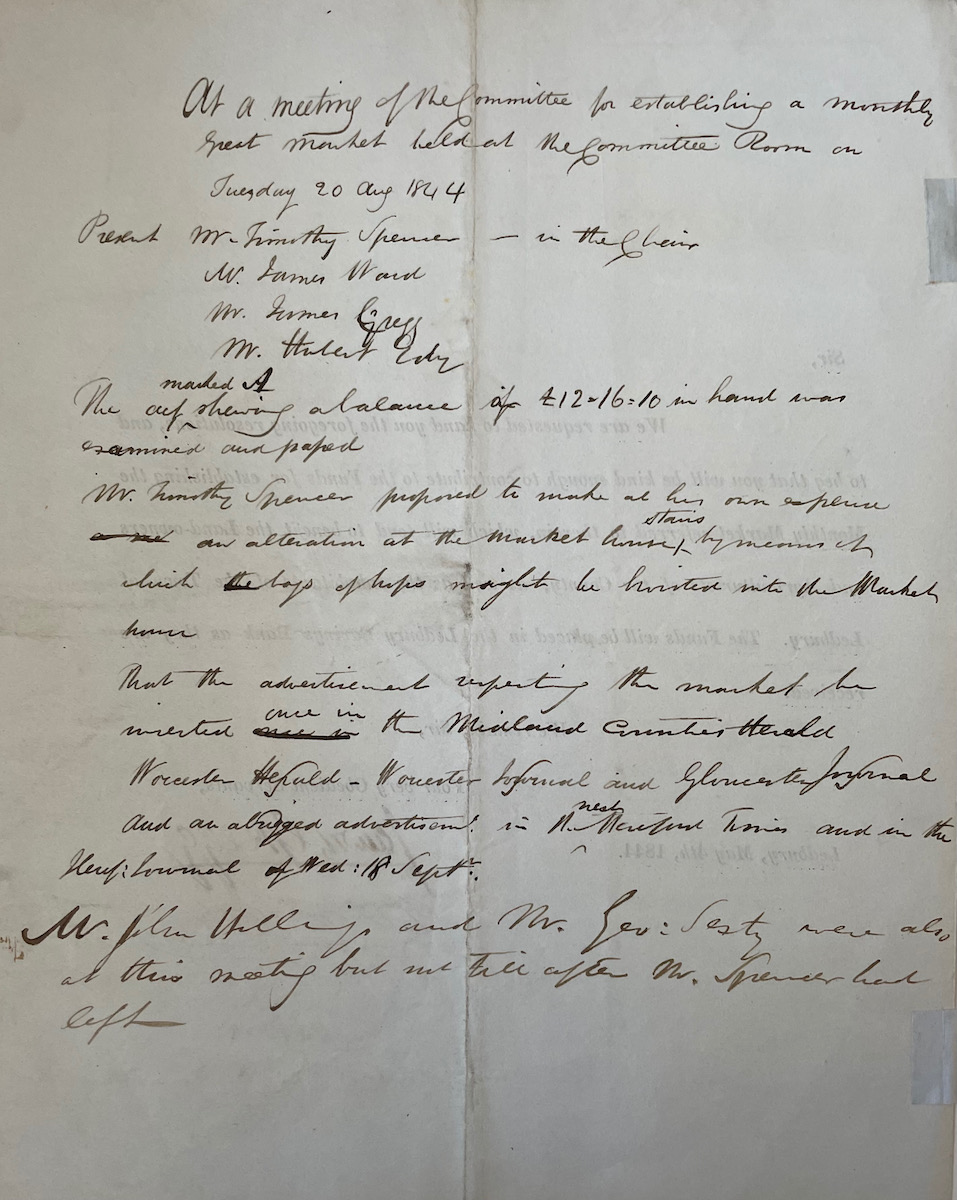 At a meeting of the Committee for establishing a monthly
great market held at the Committee Room on
Tuesday 20 Aug 1844
Present Mr. Timothy Spencer — in the Chair
Mr. James Ward
Mr. James Gregg
Mr. Hubert Edy
marked A
The acct shewing a balance of £12=16=10 in hand was
examined and passed
Mr. Timothy Spencer proposed to make at his own expense
an alteration at the Market house stairs by means of
which the bags of hops might be hoisted into the Market
house
That the advertisement respecting the market be
inserted once in the Midland Counties Herald
Worcester Herald - Worcester Journal and Gloucester Journal
And an abridged advertisemt. in the next Hereford Times and in the
Heref: Journal of Wed: 18 Septr.
Mr. John Hollings and Mr. Geo: Sexty were also
at this meeting but not till after Mr. Spencer had
left
Sir,
We are requested to hand you the foregoing resolutions, and
to beg that you will be kind enough to contribute to the Funds for establishing the
Ledbury. The Funds will be placed in the Ledbury
Ledbury, May 8th, 1844.